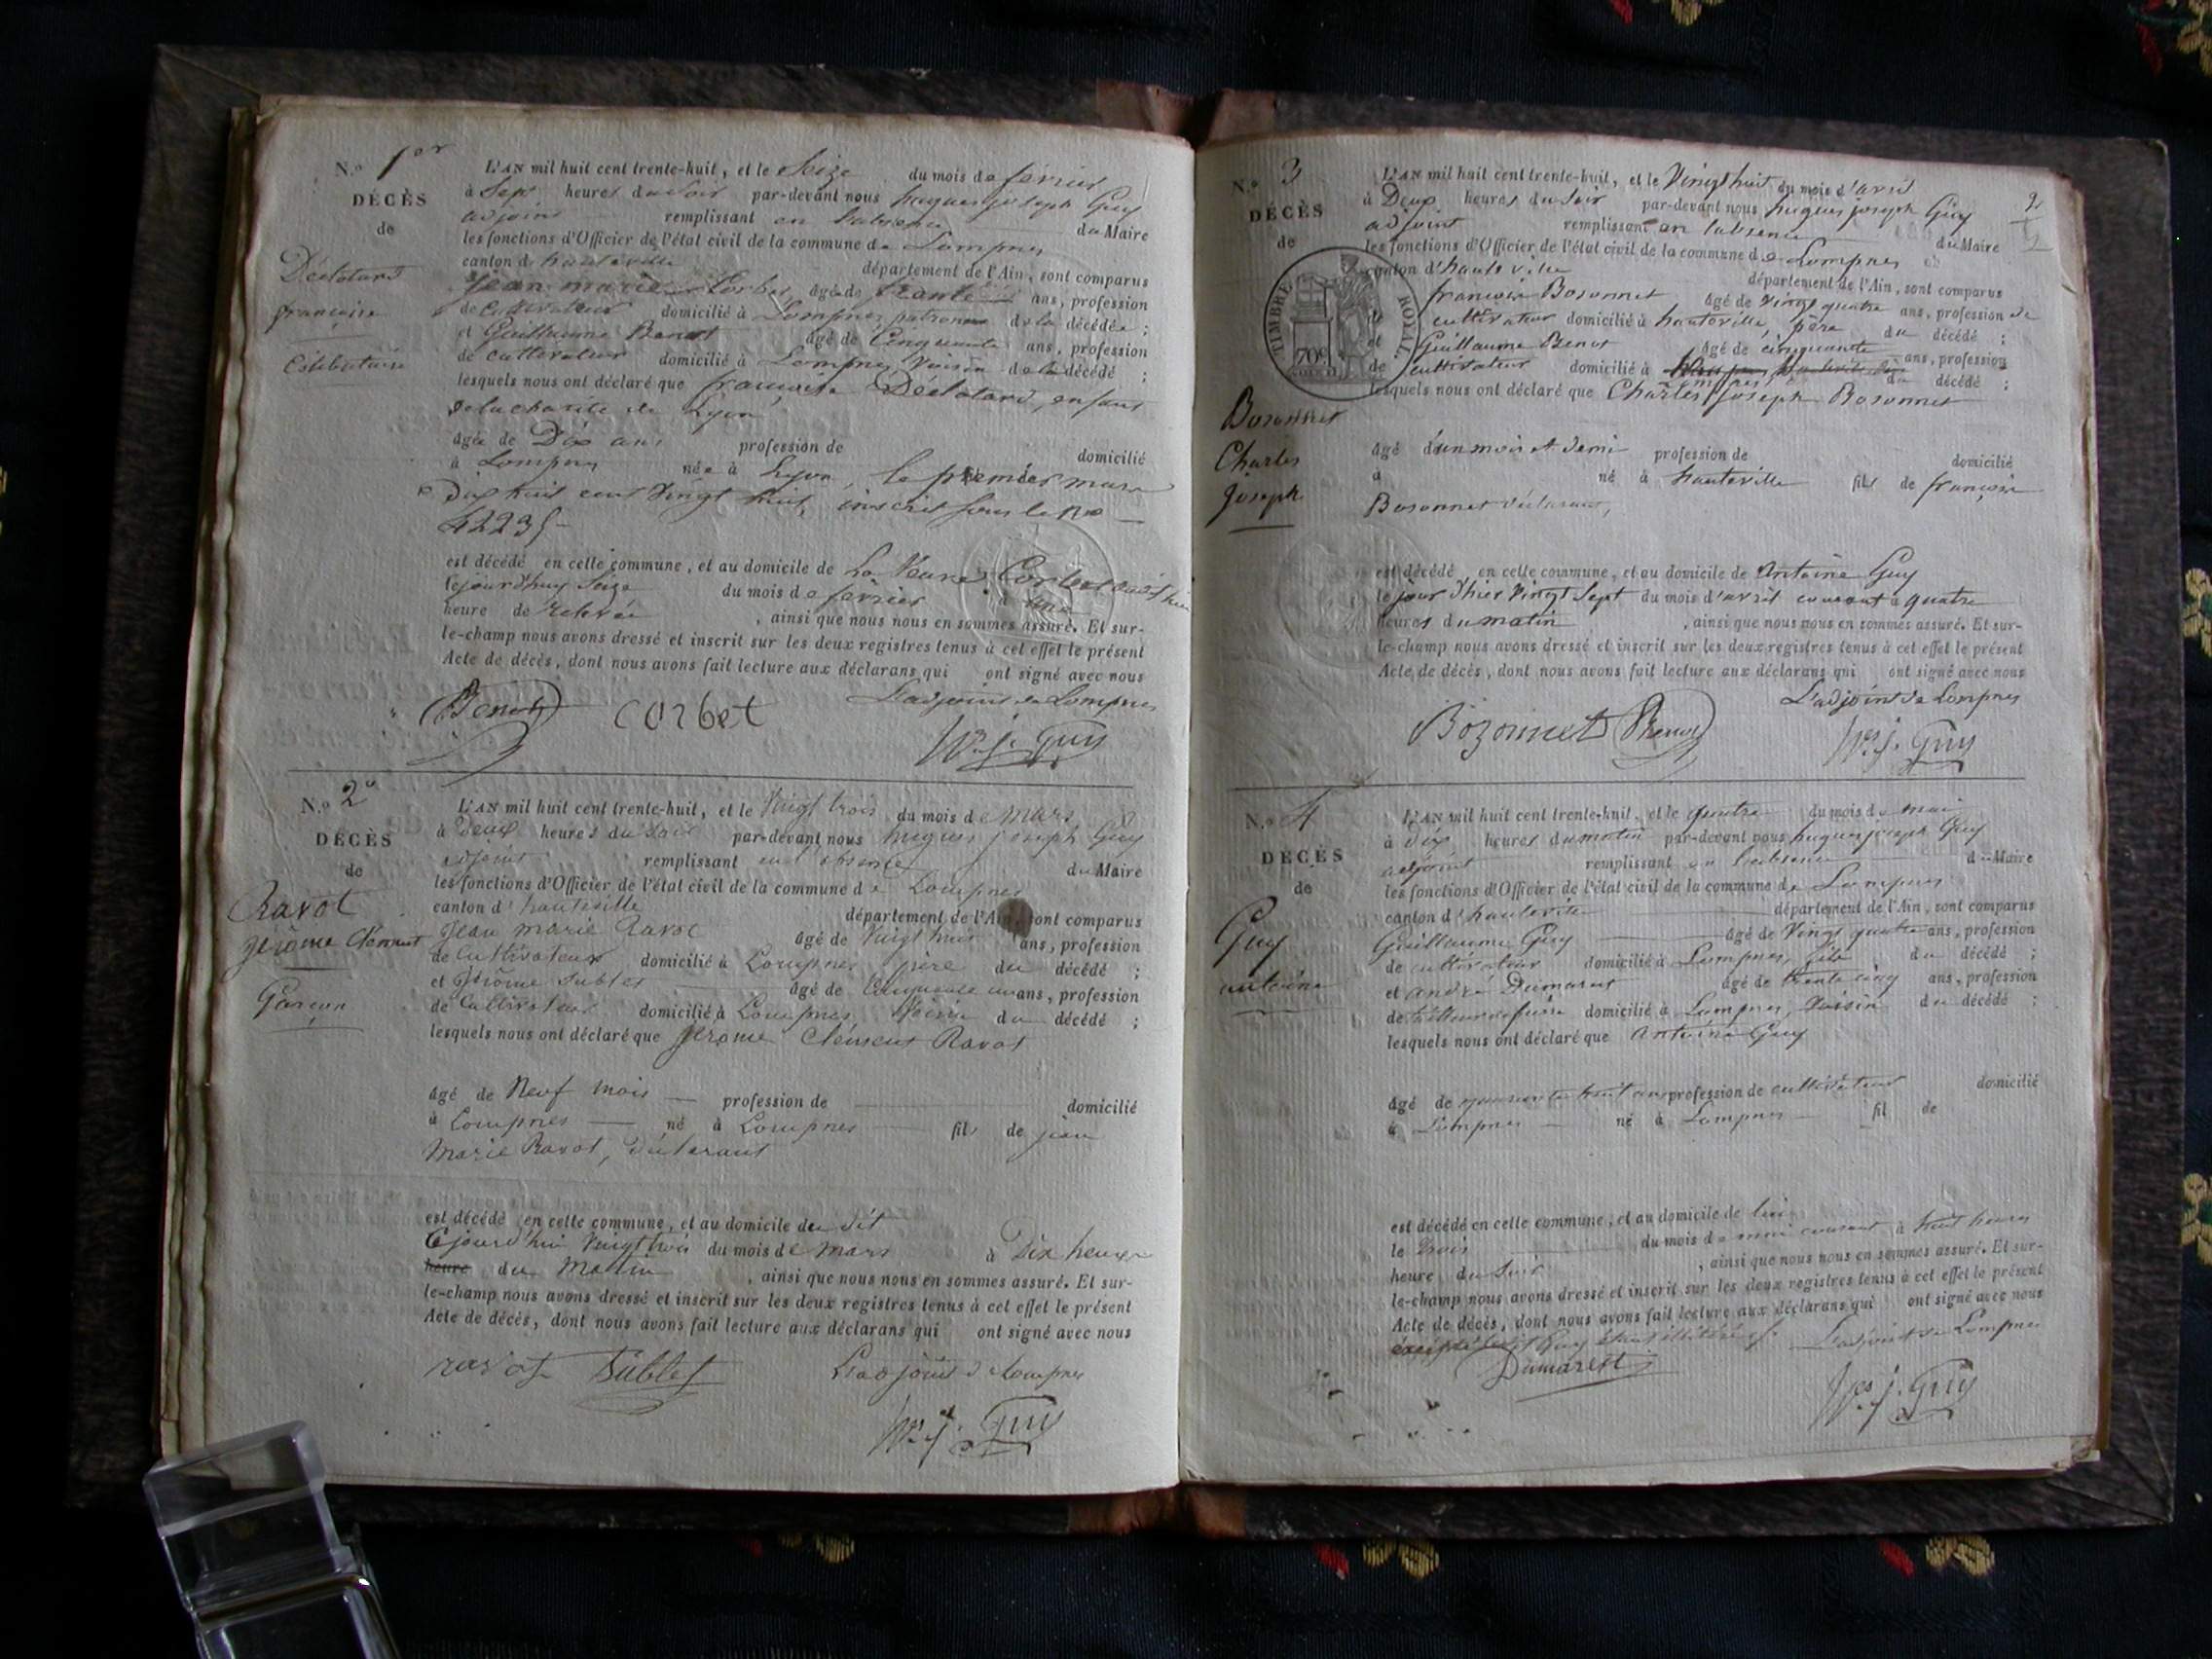 N.o 1er
DÉCÈS
de
Déclotard
françoise
Célibataire
L'AN mil huit cent trente-huit, et le Seize du mois de février
à Sept heures du soir par-devant nous hugues joseph Guy
adjoint remplissant en l'absence du Maire
les fonctions d'Officier de l'état civil de la commune de Lompnes
canton d'hauteville département de l'Ain, sont comparus
Jean marie Corbet âgé de trente ans, profession
de Cultivateur domicilié à Lompnes, patron de la décédée ;
et Guillaume Benot âgé de Cinquante ans, profession
de cultivateur domicilié à Lompnes, Voisin de la décédé ;
lesquels nous ont déclaré que françoise Déclotard, enfant
de la charité de Lyon
âgée de Dix ans profession de domicilié
à Lompnes née à Lyon, le premier mars
dix huit cent Vingt huit, inscrit sous le no
42235
est décédé en celle commune, et au domicile de La Veuve Corbet
cejourd'huy Seize du mois de février à une
heure de relevée , ainsi que nous nous en sommes assuré. Et sur-
le-champ nous avons dressé et inscrit sur les deux registres tenus à cet effet le présent
Acte de décès, dont nous avons fait lecture aux déclarans qui ont signé avec nous
L'adjoint de Lompnes
Benot corbet
hes j. Guy
N.o 2e
DÉCÈS
de
Ravot
jérôme Clément
Garçon
L'AN mil huit cent trente-huit, et le Vingt trois du mois de Mars
à Deux heures du soir par-devant nous hugues joseph Guy
adjoint remplissant en l'absence du Maire
les fonctions d'Officier de l'état civil de la commune de Lompnes
canton d'hauteville département de l'Ain, sont comparus
Jean marie Ravot âgé de Vingt huit ans, profession
de Cultivateur domicilié à Lompnes père du décédé ;
et Jérôme Sublet âgé de Cinquante un ans, profession
de Cultivateur domicilié à Lompnes, Voisin du décédé ;
lesquels nous ont déclaré que Jérome Clément Ravot
âgé de Neuf mois profession de domicilié
à Lompnes né à Lompnes fils de jean
Marie Ravot, déclarant
est décédé en celle commune, et au domicile du dit
Cejourd'hui Vingt trois du mois de mars à Dix heures
heure du Matin , ainsi que nous nous en sommes assuré. Et sur-
le-champ nous avons dressé et inscrit sur les deux registres tenus à cet effet le présent
Acte de décès, dont nous avons fait lecture aux déclarans qui ont signé avec nous
ravot Sublet L'adjoint de Lompnes
hes j. Guy
N.o 3
DÉCÈS
de
TIMBRE ROYAL
70c
Bosonnet
Charles
joseph
2
L'AN mil huit cent trente-huit, et le Vingt huit du mois d'avril
à Deux heures du Soir par-devant nous hugues joseph Guy
adjoint remplissant en l'absence du Maire
les fonctions d'Officier de l'état civil de la commune de Lompnes
canton d'hauteville département de l'Ain, sont comparus
françois Bosonnet âgé de Vingt quatre ans, profession de
cultivateur domicilié à hauteville, père du décédé ;
et Guillaume Benot âgé de cinquante ans, profession
de cultivateur domicilié à Lompnes, du décédé ;
lesquels nous ont déclaré que Charles Joseph Bosonnet
âgé d'un mois et demi profession de domicilié
à né à hauteville fils de françois
Bosonnet déclarant,
est décédé en celle commune, et au domicile de Antoine Guy
le jour d'hier Vingt Sept du mois d'avril courant à quatre
heures du matin , ainsi que nous nous en sommes assuré. Et sur-
le-champ nous avons dressé et inscrit sur les deux registres tenus à cet effet le présent
Acte de décès, dont nous avons fait lecture aux déclarans qui ont signé avec nous
L'adjoint de Lompnes
Bozonnet Benot
hes j. Guy
N.o 4
DÉCÈS
de
Guy
antoine
L'AN mil huit cent trente-huit, et le quatre du mois de mai
à dix heures du matin par-devant nous hugues joseph Guy
adjoint remplissant en l'absence du Maire
les fonctions d'Officier de l'état civil de la commune de Lompnes
canton d'hauteville département de l'Ain, sont comparus
Guillaume Guy âgé de Vingt quatre ans, profession
de cultivateur domicilié à Lompnes, fils du décédé ;
et andré Dumarest âgé de trente cinq ans, profession
de tailleur de pierre domicilié à Lompnes, Voisin du décédé ;
lesquels nous ont déclaré que Antoine Guy
âgé de quarante huit ans profession de cultivateur domicilié
à Lompnes né à Lompnes fil de
est décédé en celle commune, et au domicile de lui
le trois du mois de mai courant à huit heures
heure du Soir , ainsi que nous nous en sommes assuré. Et sur-
le-champ nous avons dressé et inscrit sur les deux registres tenus à cet effet le présent
Acte de décès, dont nous avons fait lecture aux déclarans qui ont signé avec nous
excepté ledit Guy étant illitéré. L'adjoint de Lompnes
Dumarest
hes j. Guy